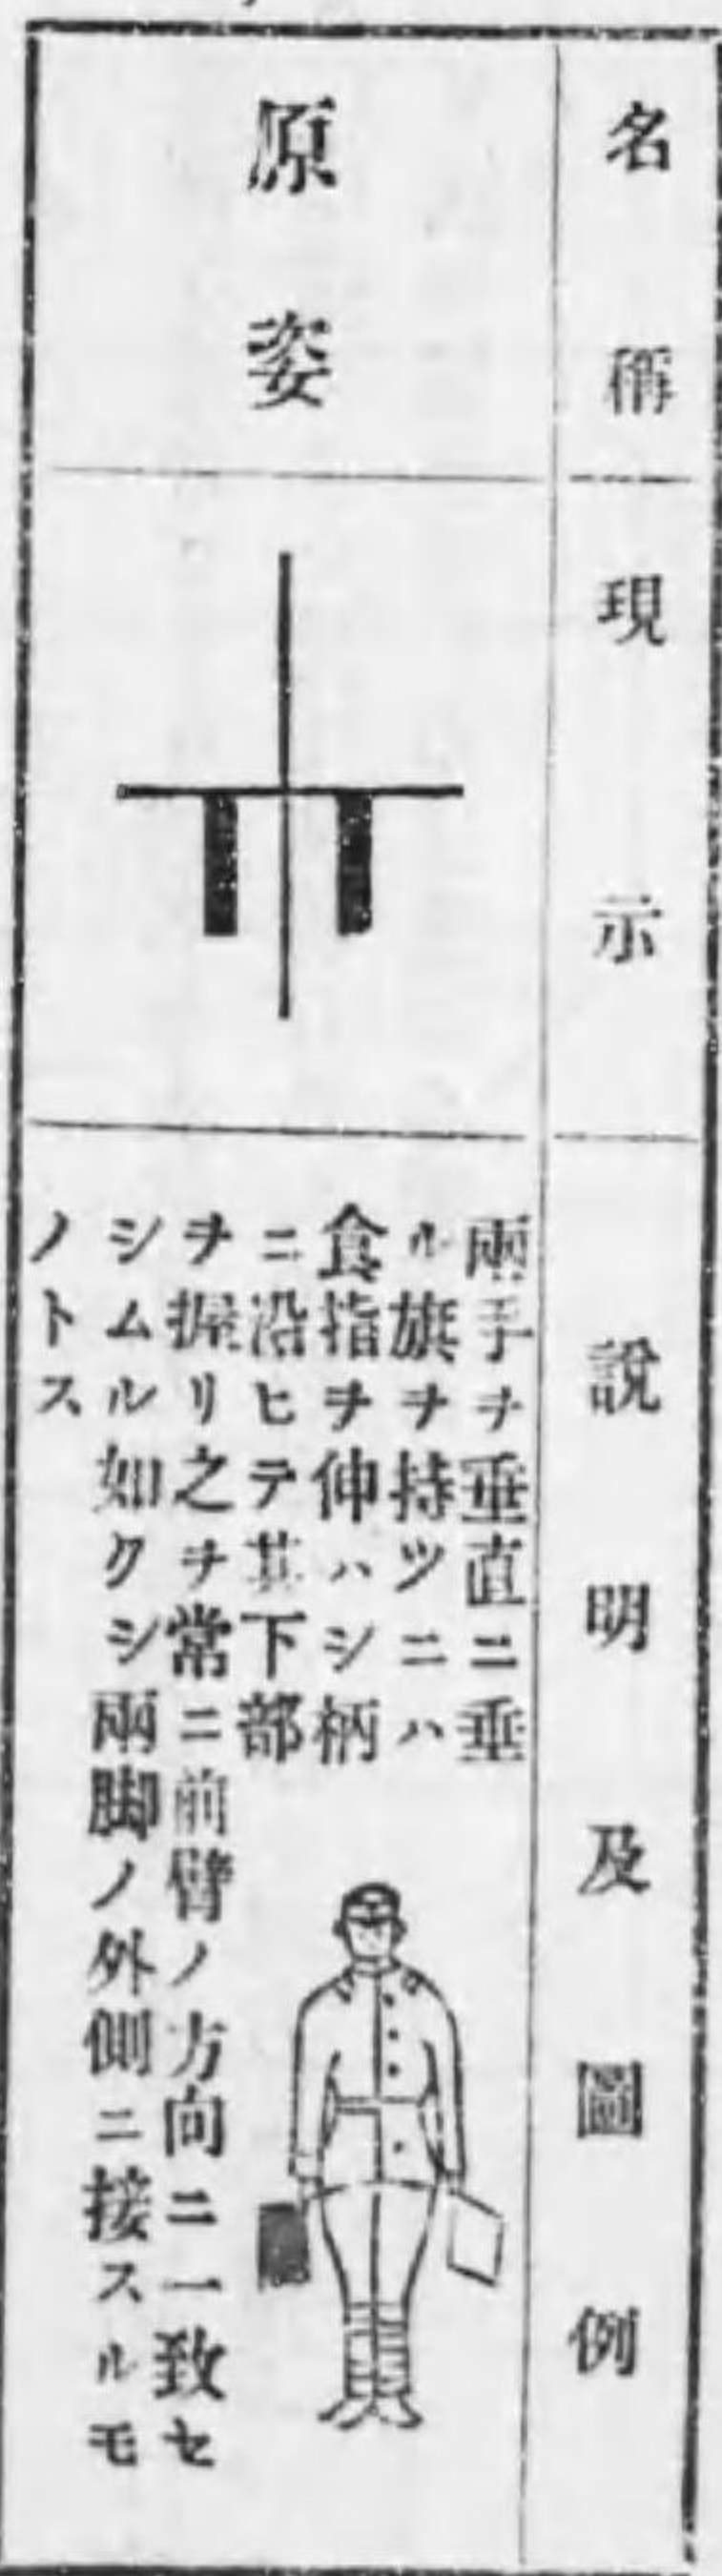 名稱
現示
説明及圖例
原姿
兩手ヲ垂直ニ垂
ル旗ヲ持ツニハ
食指ヲ伸ハシ柄
ニ沿ヒテ其下部
ヲ握リ之ヲ常ニ前臂ノ方向ニ一致セ
シムル如クシ兩脚ノ外側ニ接スルモ
ノトス